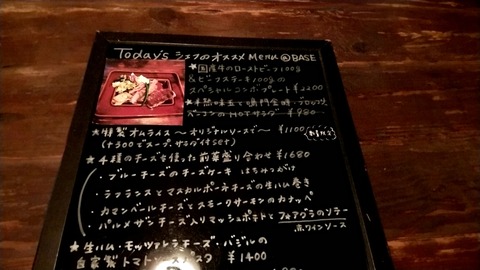 Today's シェフのオススメ MENU @BASE
★国産牛のローストビーフ100g
&ビーフステーキ100gの
スペシャルコンボプレート ¥2200
★半熟味玉と鳴門金時・ブロッコリ
ーコンのHOTサラダ ¥980
★特製オムライス〜オリジナルソースで〜 ¥1100
(+300でスープ、サラダ付set)
★4種のチーズを使った前菜盛り合わせ ¥1680
・ブルーチーズのチーズケーキ はちみつがけ
・ラフランスとマスカルポーネチーズの生ハム巻き
・カマンベールチーズとスモークサーモンのカナッペ
・パルメザンチーズ入りマッシュポテトとフォアグラのソテー
赤ワインソース
★生ハム・モッツァレラチーズ・バジルの
自家製トマトソースパスタ ¥1400